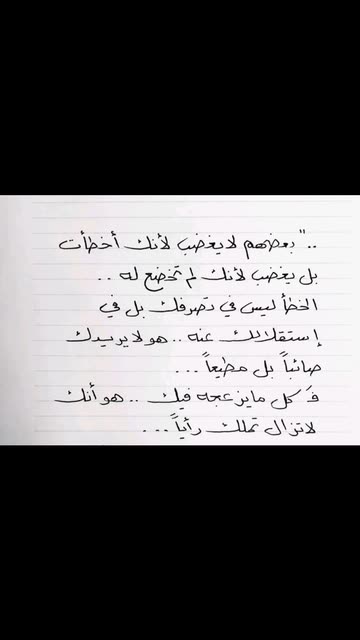 .." بعضهم لا يغضب لأنك أخطأت
بل يغضب لأنك لم تخضع له ..
الخطأ ليس في تصرفك بل في
إستقلالك عنه .. هو لا يريدك
صائباً بل مطيعاً ...
فَكل ما يزعجه فيك .. هو أنك
لا تزال تملك رأياً ...